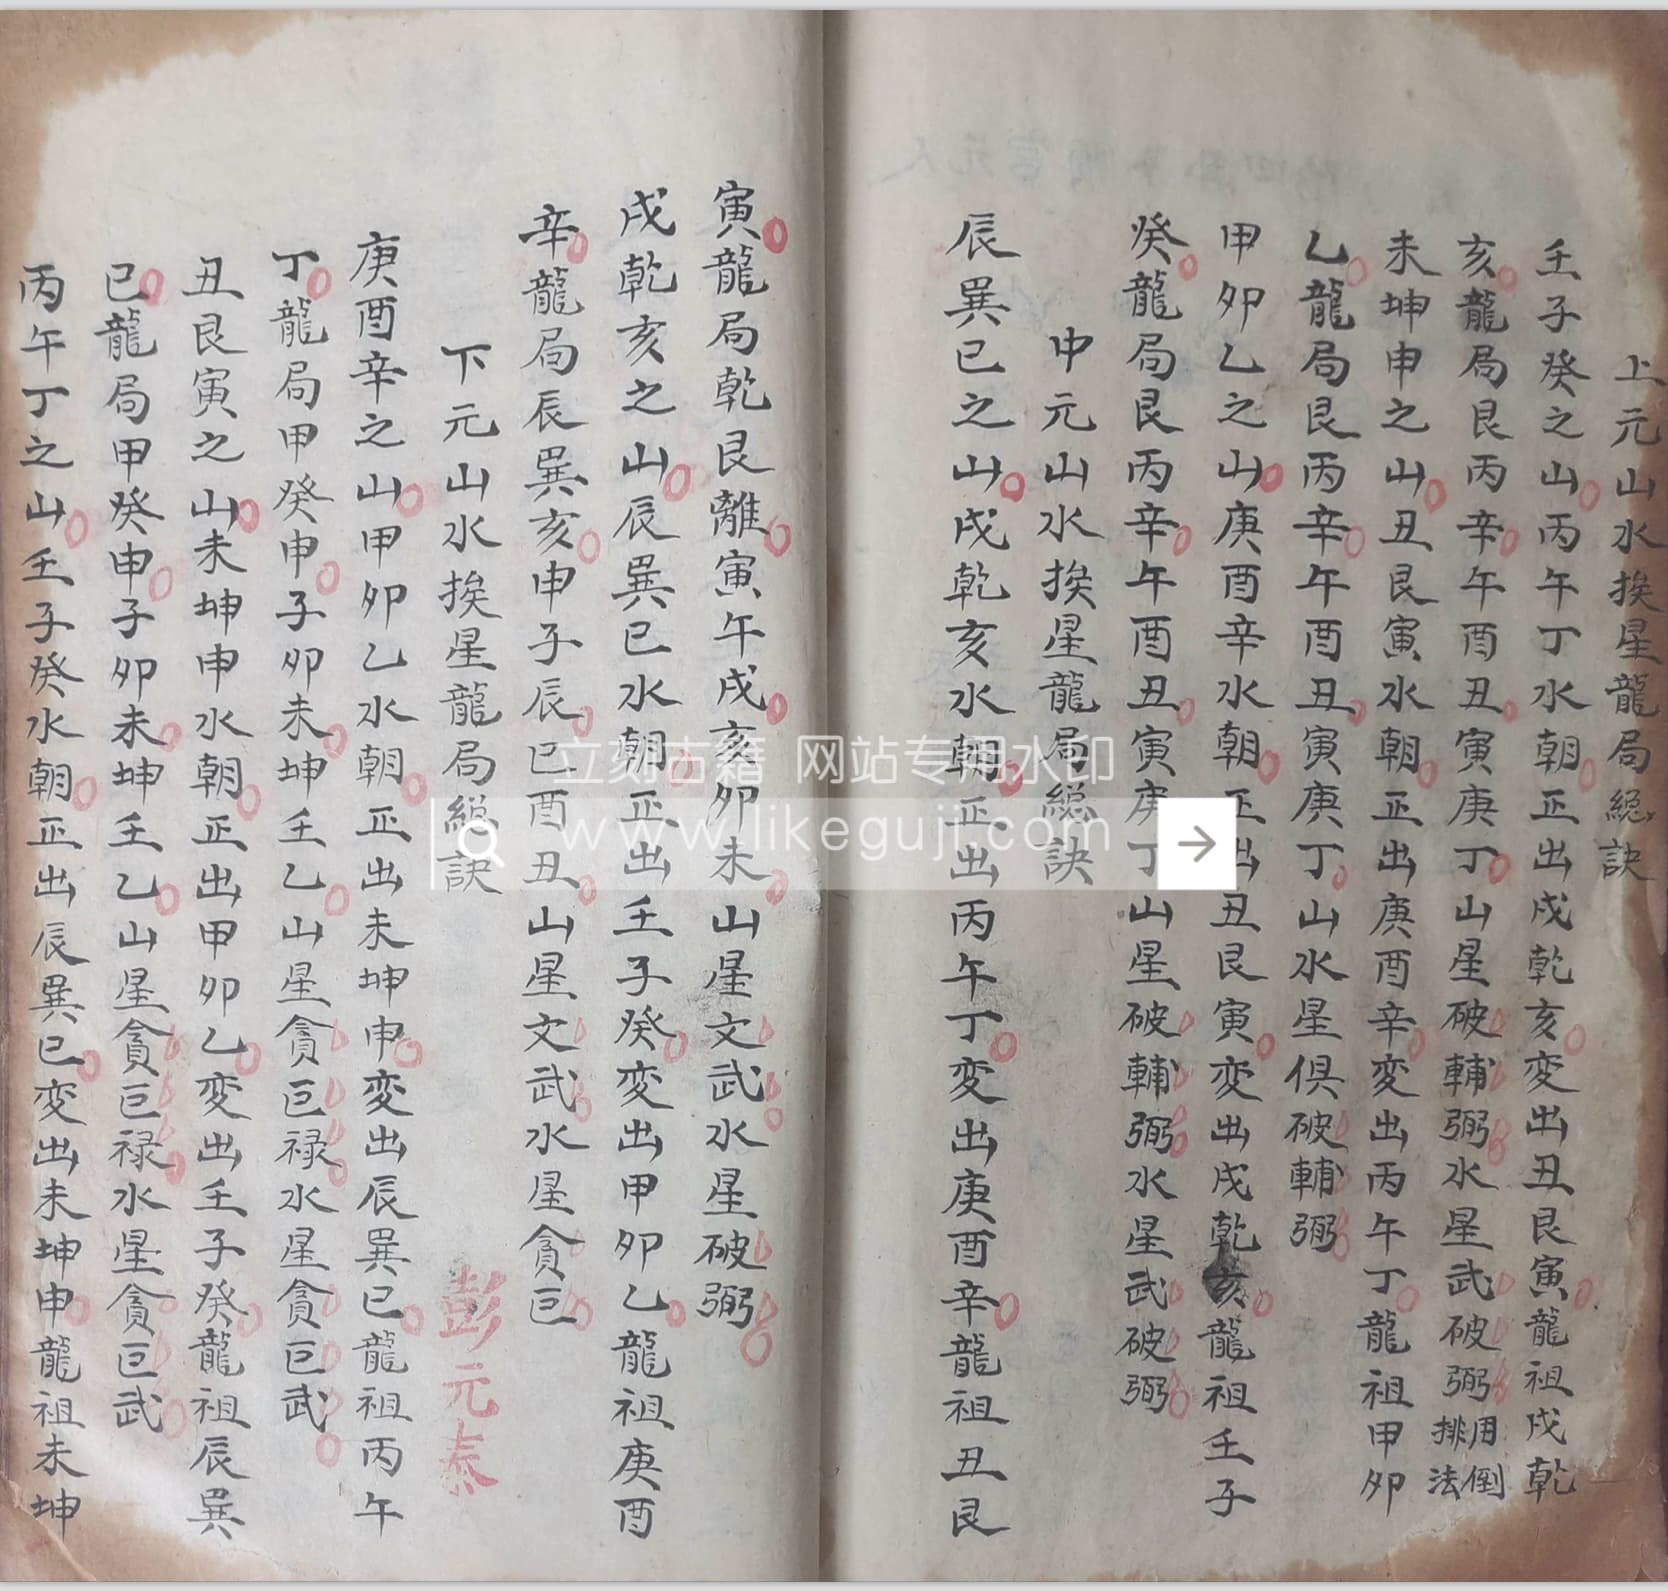 上元山水挨星龍局総訣
壬子癸之山丙午丁水朝正出戌乾亥変出丑艮寅龍祖戌乾
亥龍局艮丙辛午酉丑寅庚丁山星破輔弼水星武破弼用倒排法
未坤申之山丑艮寅水朝正出庚酉辛変出丙午丁龍祖甲卯
乙龍局艮丙辛午酉丑寅庚丁山水星俱破輔弼
甲卯乙之山庚酉辛水朝正出丑艮寅変出戌乾亥龍祖壬子
癸龍局艮丙辛午酉丑寅庚丁山星破輔弼水星武破弼
中元山水挨星龍局総訣
辰巽巳之山戌乾亥水朝正出丙午丁変出庚酉辛龍祖丑艮
寅龍局乾艮離寅午戌亥卯未山星文武水星破弼
戌乾亥之山辰巽巳水朝正出壬子癸変出甲卯乙龍祖庚酉
辛龍局辰巽亥申子辰巳酉丑山星文武水星貪巨
下元山水挨星龍局総訣
彭元泰
庚酉辛之山甲卯乙水朝正出未坤申変出辰巽巳龍祖丙午
丁龍局甲癸申子卯未坤壬乙山星貪巨禄水星貪巨武
丑艮寅之山未坤申水朝正出甲卯乙変出壬子癸龍祖辰巽
巳龍局甲癸申子卯未坤壬乙山星貪巨禄水星貪巨武
丙午丁之山壬子癸水朝正出辰巽巳変出未坤申龍祖未坤
立刻古籍 网站专用水印
www.likeguji.com